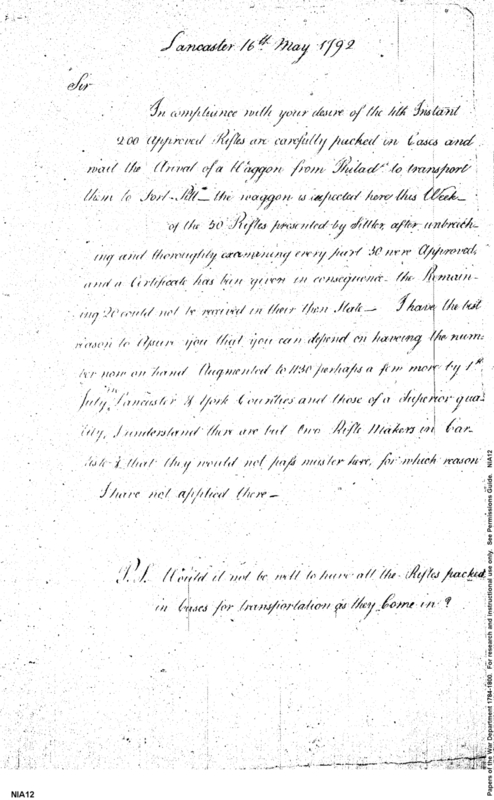 Lancaster 16th May 1792
Sir
In compliance with your desire of the 4th Instant
200 approved Rifles are carefully packed in Cases and
wait the Arival of a Waggon from Philada to transport
them to Fort-Pitt — the waggon is expected here this Week —
of the 50 Rifles presented by Tittler, after unbreach-
ing and thoroughly examaning every part 30 were Approved,
and a Certificate has been given in consequence — the Remain-
ing 20 could not be received in their then State — I have the best
reason to Assure you that you can depend on haveing the num-
ber now on hand Augmented to 450 perhaps a few more by 1st
July, in Lancaster & York Counties and those of a Superior qua-
lity, I understand there are but two Rifle Makers in Car-
lisle & that they would not pass muster here, for which reason
I have not applied there —
P.S. Would it not be well to have all the Rifles packed
in Cases for transportation as they Come in?
Papers of the War Department 1784-1800. For research and instructional use only. See Permissions Guide. NIA12
NIA12